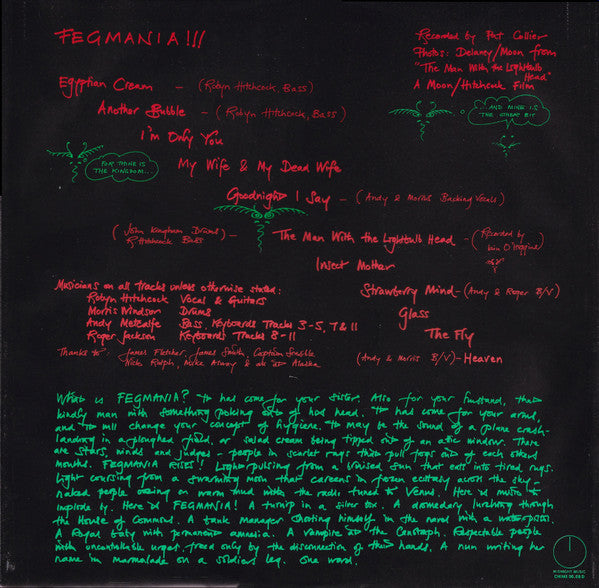 FEGMANIA!!!
Recorded by Pat Collier
Photos: Delaney/Moon from
"The Man With the Lightbulb Head"
A Moon/Hitchcock Film
Egyptian Cream - (Robyn Hitchcock, Bass)
Another Bubble - (Robyn Hitchcock, Bass)
...AND MINE IS
THE GREAT BIT
I'm Only You
FOR THINE IS
THE KINGDOM...
My Wife & My Dead Wife
Goodnight I Say - (Andy & Morris Backing Vocals)
(John Kingham Drums)
R Hitchcock Bass
- The Man With the Lightbulb Head - (Recorded by
Iain O'Higgins)
Insect Mother
Strawberry Mind - (Andy & Roger B/V)
Glass
The Fly
(Andy & Morris B/V) - Heaven
Musicians on all tracks unless otherwise stated:
Robyn Hitchcock Vocal & Guitars
Morris Windsor Drums
Andy Metcalfe Bass, Keyboards Tracks 3-5, 7 & 11
Roger Jackson Keyboards Tracks 8-11
Thanks to James Fletcher, James Smith, Captain Sensible
Nick Ralph, Mike Alway & all at Alaska
What is FEGMANIA? It had come for your sister. Also for your husband, that
kindly man with something poking out of his head. It had come for your arms,
and it will change your concept of hygiene. It may be the sound of a plane crash-
landing in a ploughed field, or salad cream being tipped out of an attic window. There
are stars, minds and judges - people in scarlet rags that pull tops out of each others
mouths. FEGMANIA RISES! Light pulsing from a bruised sun that eats into tired rags.
Light coursing from a swarming moon that careens in frozen ecstasy across the sky -
naked people oozing on warm mud with the radio tuned to Venus. Here is music to
implode by. Here is FEGMANIA! A turnip in a silver box. A dromedary lurching through
the House of Commons. A bank manager shooting himself in the navel with a waterpistol.
A Royal baby with permanent amnesia. A vampire at the Cenotaph. Respectable people
with uncontrollable urges, freed only by the disconnection of their hands. A nun writing her
name in marmalade on a soldiers leg. One word.
MIDNIGHT MUSIC
CHIME 00.08 D